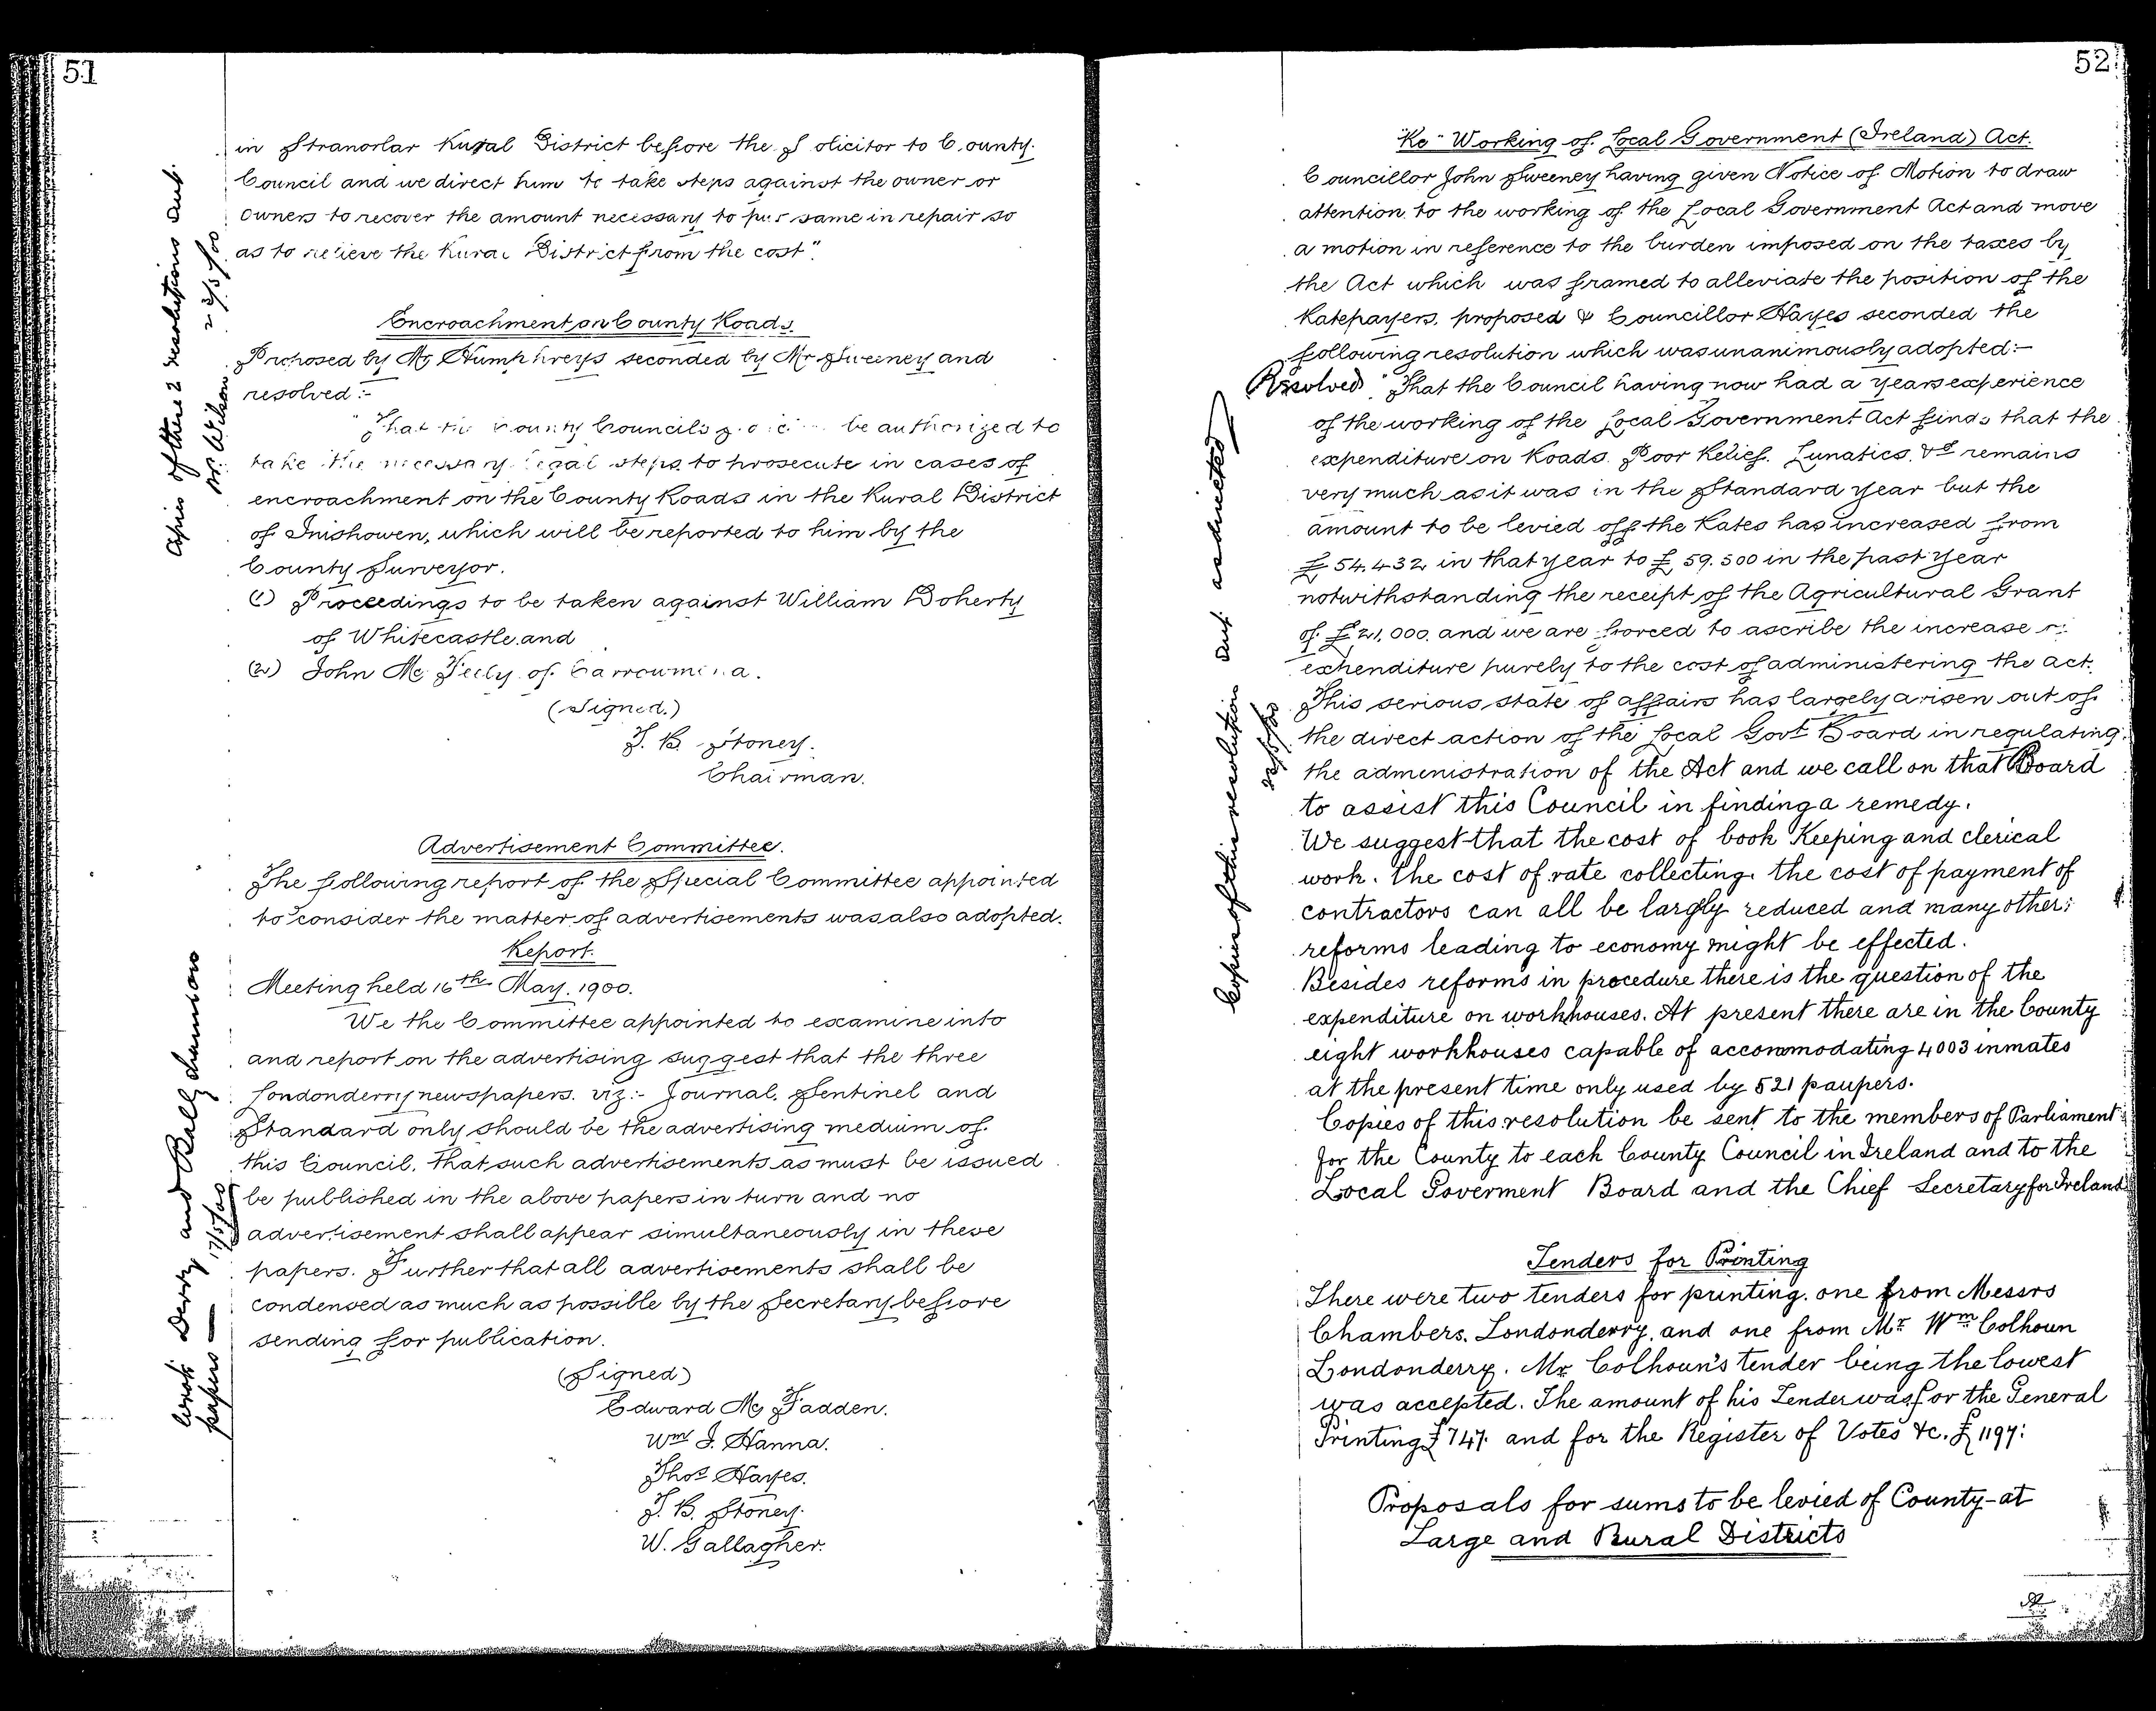 51
in Stranorlar Rural District before the Solicitor to County
Council and we direct him to take steps against the owner or
owners to recover the amount necessary to put same in repair so
as to relieve the Rural District from the cost".
Copies of these 2 resolutions sent
Mr. Wilson 22/5/00
Encroachment on County Roads.
Proposed by Mr Humphreys seconded by Mr Sweeney and
resolved:-
"That the County Councils Solicitor be authorized to
take the necessary legal steps to prosecute in cases of
encroachment on the County Roads in the Rural District
of Inishowen, which will be reported to him by the
County Surveyor.
(1) Proceedings to be taken against William Doherty
of Whitecastle and
(2) John Mc Feely of
(Signed.)
T. B. Stoney.
Chairman.
Advertisement Committee.
The following report of the Special Committee appointed
to consider the matter of advertisements was also adopted.
Report.
Meeting held 16th May. 1900.
We the Committee appointed to examine into
and report on the advertising suggest that the three
Londonderry newspapers. viz:- Journal, Sentinel and
Standard only should be the advertising medium of
this Council, that such advertisements as must be issued
be published in the above papers in turn and no
advertisement shall appear simultaneously in these
papers. Further that all advertisements shall be
condensed as much as possible by the Secretary before
sending for publication.
Wrote Derry and Ballyshannon
papers 17/5/00
(Signed)
Edward Mc Fadden.
Wm J. Hanna.
Thos Hayes.
T. B. Stoney.
W. Gallagher.
52
"Re" Working of Local Government (Ireland) Act.
Councillor John Sweeney having given Notice of Motion to draw
attention to the working of the Local Government Act and move
a motion in reference to the burden imposed on the taxes by
the Act which was framed to alleviate the position of the
Ratepayers, proposed & Councillor Hayes seconded the
following resolution which was unanimously adopted:-
Resolved "That the Council having now had a years experience
of the working of the Local Government Act finds that the
expenditure on Roads. Poor Relief. Lunatics, &c remains
very much as it was in the Standard year but the
amount to be levied off the Rates has increased from
£54.432 in that year to £59.500 in the past year
notwithstanding the receipt of the Agricultural Grant
of £21,000 and we are forced to ascribe the increase
expenditure purely to the cost of administering the act.
This serious state of affairs has largely arisen out of
the direct action of the Local Govt Board in regulating
the administration of the Act and we call on that Board
to assist this Council in finding a remedy.
We suggest that the cost of book Keeping and clerical
work. the cost of rate collecting. the cost of payment of
contractors can all be largly reduced and many other
reforms leading to economy might be effected.
Besides reforms in procedure there is the question of the
expenditure on workhouses. At present there are in the County
eight workhouses capable of accommodating 4003 inmates
at the present time only used by 521 paupers.
Copies of this resolution be sent to the members of Parliament
for the County to each County Council in Ireland and to the
Local Goverment Board and the Chief Secretary for Ireland
Copies of this resolution sent as directed
22/5/00
Tenders for Printing
There were two tenders for printing. one from Messrs
Chambers. Londonderry, and one from Mr Wm Colhoun
Londonderry. Mr Colhoun's tender being the lowest
was accepted. The amount of his Tender was for the General
Printing £747. and for the Register of Votes &c. £1197:
Proposals for sums to be levied of County-at
Large and Rural Districts